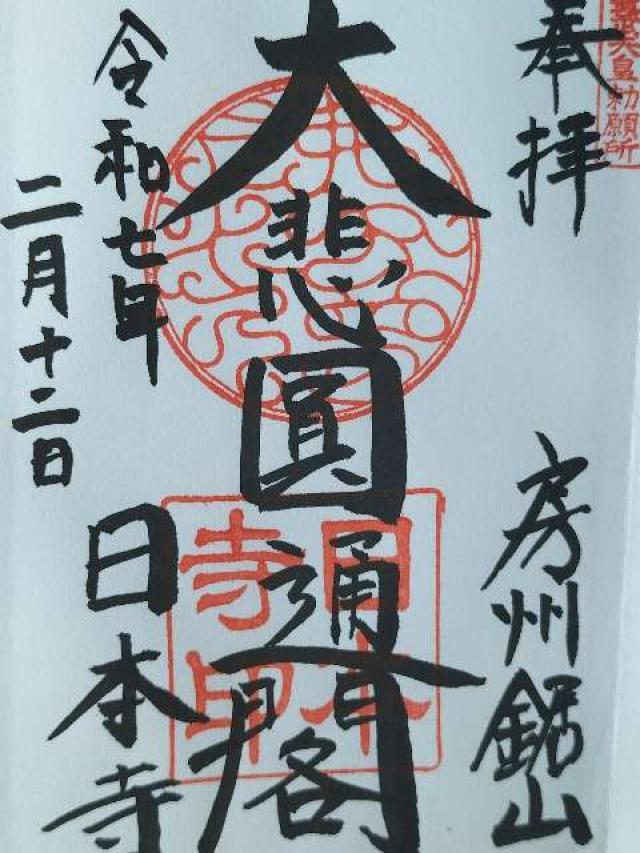 天皇勅願所
奉拝
房州鋸山
大悲圓通閣
令和七年
二月十二日
日本寺
日本寺印